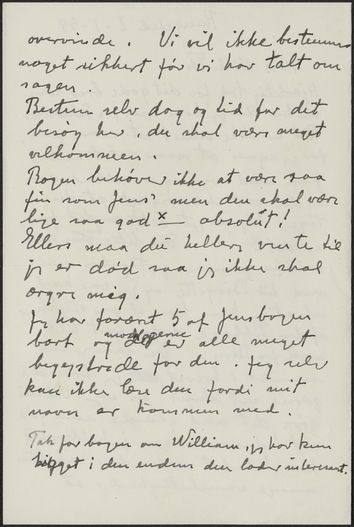 overvinde. Vi vil ikke bestemme
noget sikkert før vi har talt om
sagen.
Bestem selv dag og tid for det
besøg her, du skal være meget
velkommen.
Bogen behøver ikke at være saa
fin som Jens' men den skal være
lige saa god x — absolut!
Ellers maa du hellere vente til
jeg er død saa jeg ikke skal
ærgre mig.
Jeg har foræret 5 af Jensbogen
bort og modtagerne er alle meget
begejstrede for den. Jeg selv
kan ikke læse den fordi mit
navn er kommen med.
Tak for bogen om William, jeg har kun
kigget i den endnu den lader interessant.